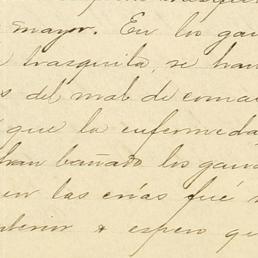 mayor. En los gan
trasquila, se han
s del mal de coma
que la enfermeda
han bañado los gana
en las crías fué
interior & espero qu